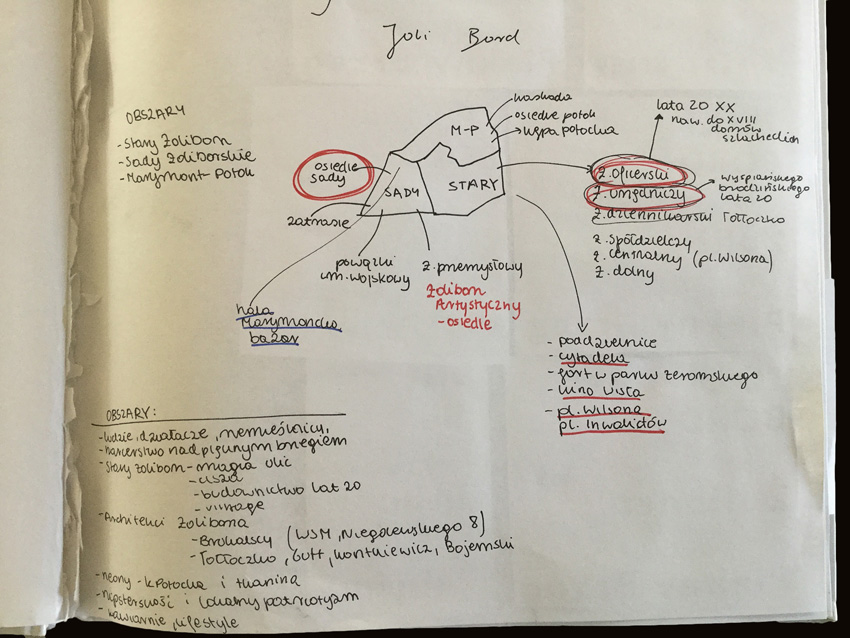 Joli Bord
OBSZARY
- Stary Żoliborz
- Sady Żoliborskie
- Marymont-Potok
kaskada
osiedle potok
kępa potocka
M-P
osiedle
sady
SADY
STARY
zatrasie
powązki
cm. wojskowy
Ż. przemysłowy
Żoliborz
Artystyczny
- osiedle
hala
Marymoncka
bazar
lata 20 XX
naw. do XVIII
domów
szlacheckich
Ż. oficerski
Ż. urzędniczy
wyspiańskiego
brodzińskiego
lata 20
Ż. dziennikarski Tołłoczko
Ż. spółdzielczy
Ż. centralny (pl. Wilsona)
Ż. dolny
- poddzielnice
- cytadela
- fort w parku Żeromskiego
- kino Wisła
- pl. Wilsona
pl. Inwalidów
OBSZARY:
- ludzie, działacze, rzemieślnicy,
- harcerstwo nad pięknym brzegiem
- Stary Żoliborz - magia ulic
- cisza
- budownictwo lat 20
- vintage
- Architekci Żoliborza
- Brukalscy (WSM, Niegolewskiego 8)
- Tołłoczko, Gutt, Kontkiewicz, Bojemski
- neony - k. Potocka i tkanina
- hipsterskość i lokalny patriotyzm
- kawiarnie, lifestyle